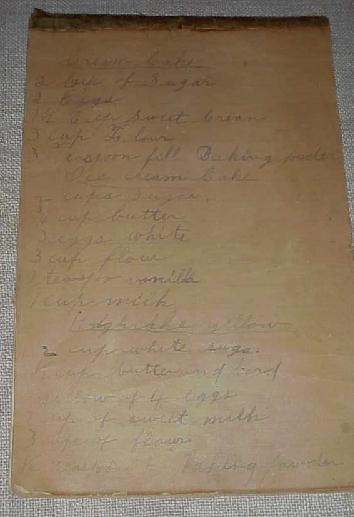 Cream Cake
2 Cup of Sugar
2 Eggs
1/2 Cup Sweet Cream
3 Cup Flour
3 Teaspoon full Baking powder
Ice cream Cake
2 cups Sugar.
cup butter
3 eggs white
3 cup flour
1 teaspoon vanilla
1 cup milk
yellow
2 cup white suga.
cup butter and lard
yellow of 4 eggs
cup of sweet milk
3 cups of flour
teaspoon Baking powder